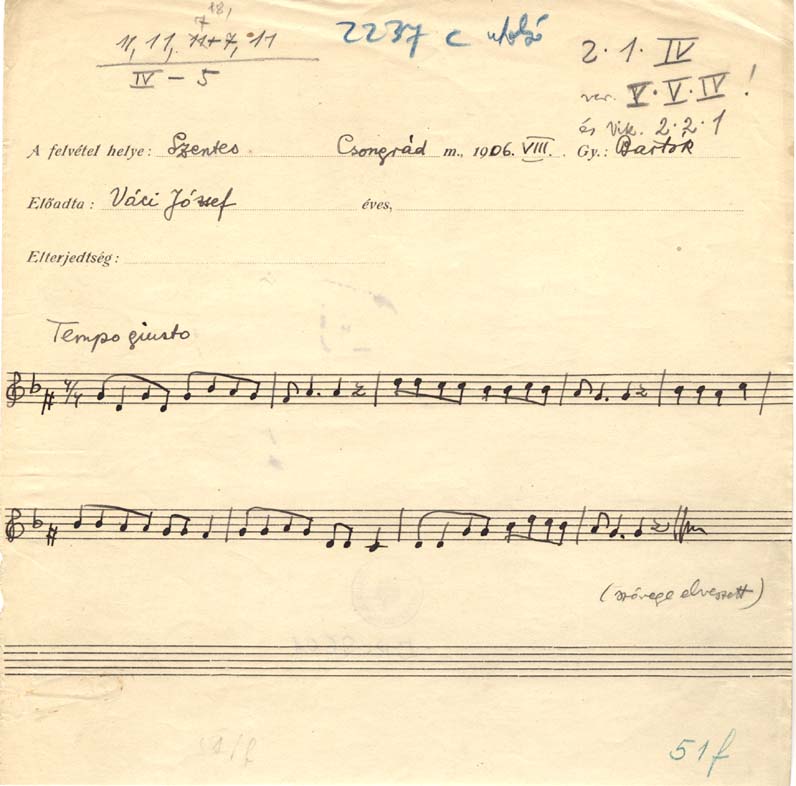 18,
7
11, 11, 11+7, 11
IV – 5
2237 c utolsó
2·1·IV
var. V·V·IV!
és Vik. 2·2·1
A felvétel helye: Szentes Csongrád m., 1906. VIII. Gy.: Bartók
Előadta: Váci József éves,
Elterjedtség:
Tempo giusto
4/4
(szövege elveszett)
51f